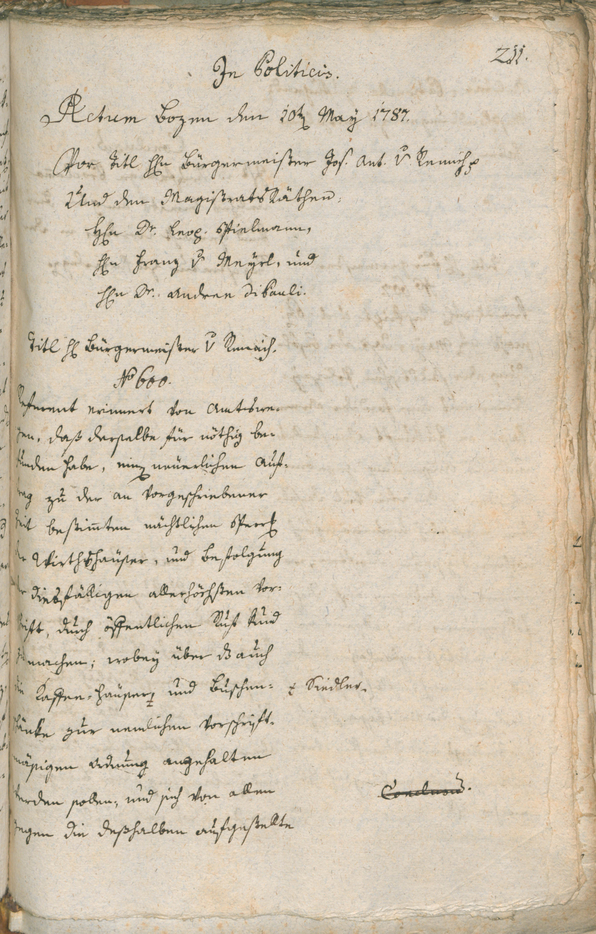 211.
In Politicis.
Actum Bozen den 10t May 1787.
Vor Titl Hhn Bürgermeister Jos. Ant. v Remich
Und den Magistrats Räthen,
Hhn Dr. Leop. Spielmann,
Hhn Franz v Meyrl, und
Hhn Dr. Andree Dipauli.
Titl Hh Bürgermeister v Remich.
No 600.
Referent erinnert von Amtswe-
gen, daß derselbe für nöthig be-
funden habe, einen neuerlichen Auf-
trag zu der an vorgeschriebener
Zeit bestimmten nächtlichen Sperr
der Wirthshäuser, und Befolgung
der diesfälligen allerhöchsten Vor-
schrift, durch öffentlichen Ruf kund
zu machen; wobey über dß auch
die Kaffee-Häuser und Buschen- Siedler.
schänke zur nemlichen vorschrift-
mäßigen Ordnung angehalten
werden sollen, und sich von allen
gegen die deßhalben aufgestellte
Conclusum.